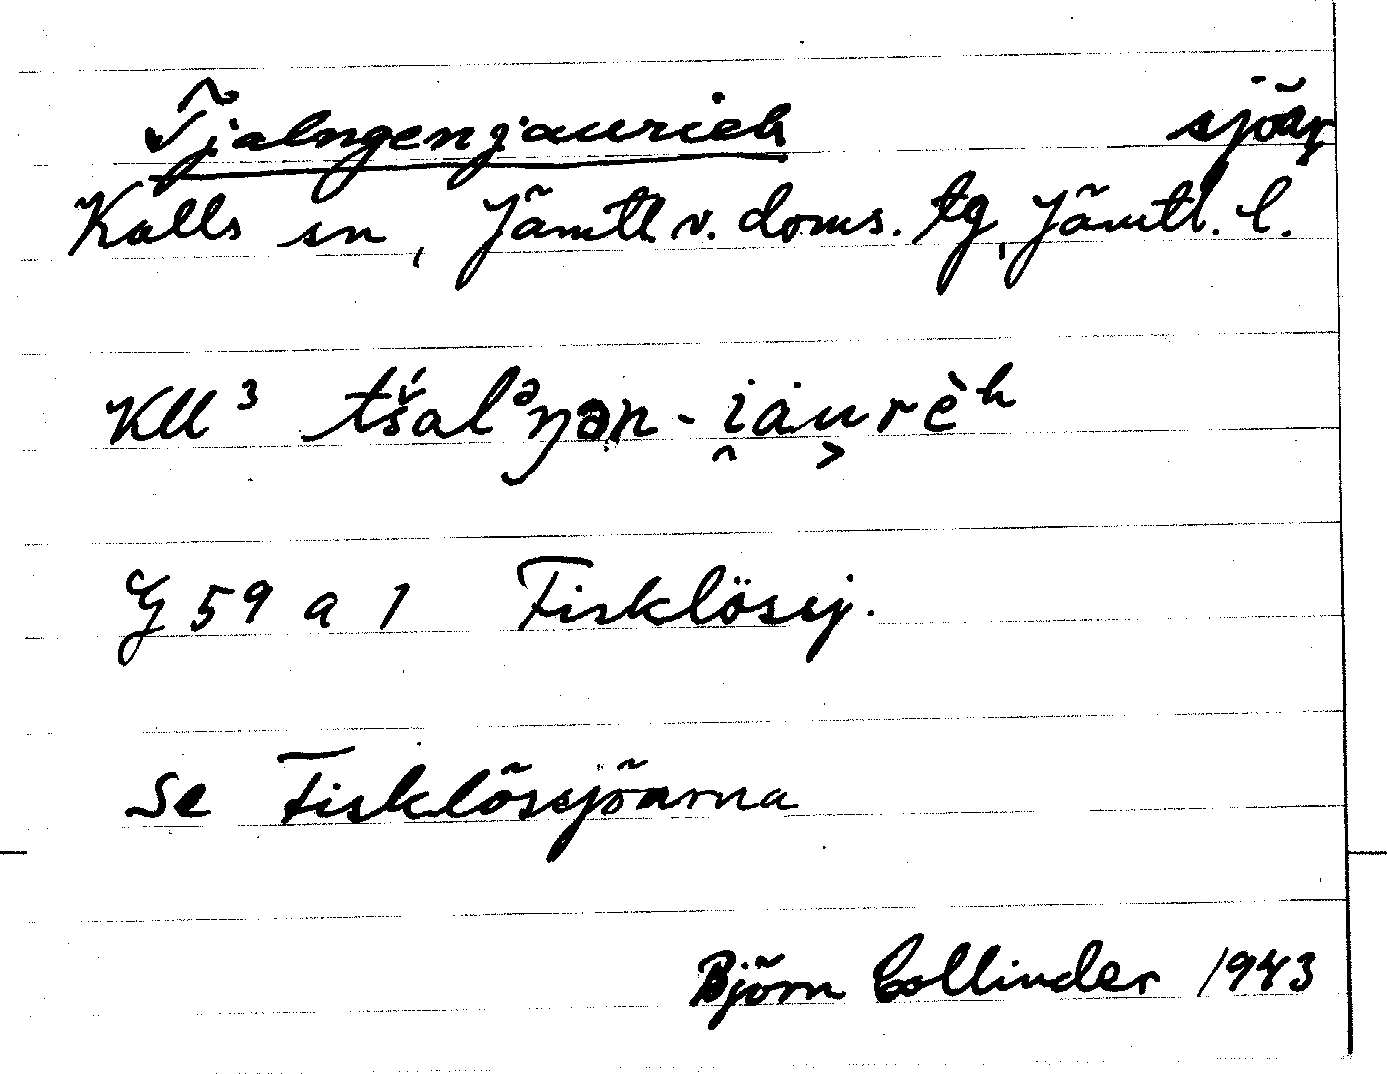 Tjalngenjaurieh sjöar
Kalls sn, Jämtl. v. doms. tg, Jämtl. l.
Kll³ tš́alᵊŋən-i̯àu̬rèʰ
G 59 a 1 Fisklössj.
Se Fisklössjöarna
Björn Collinder 1943